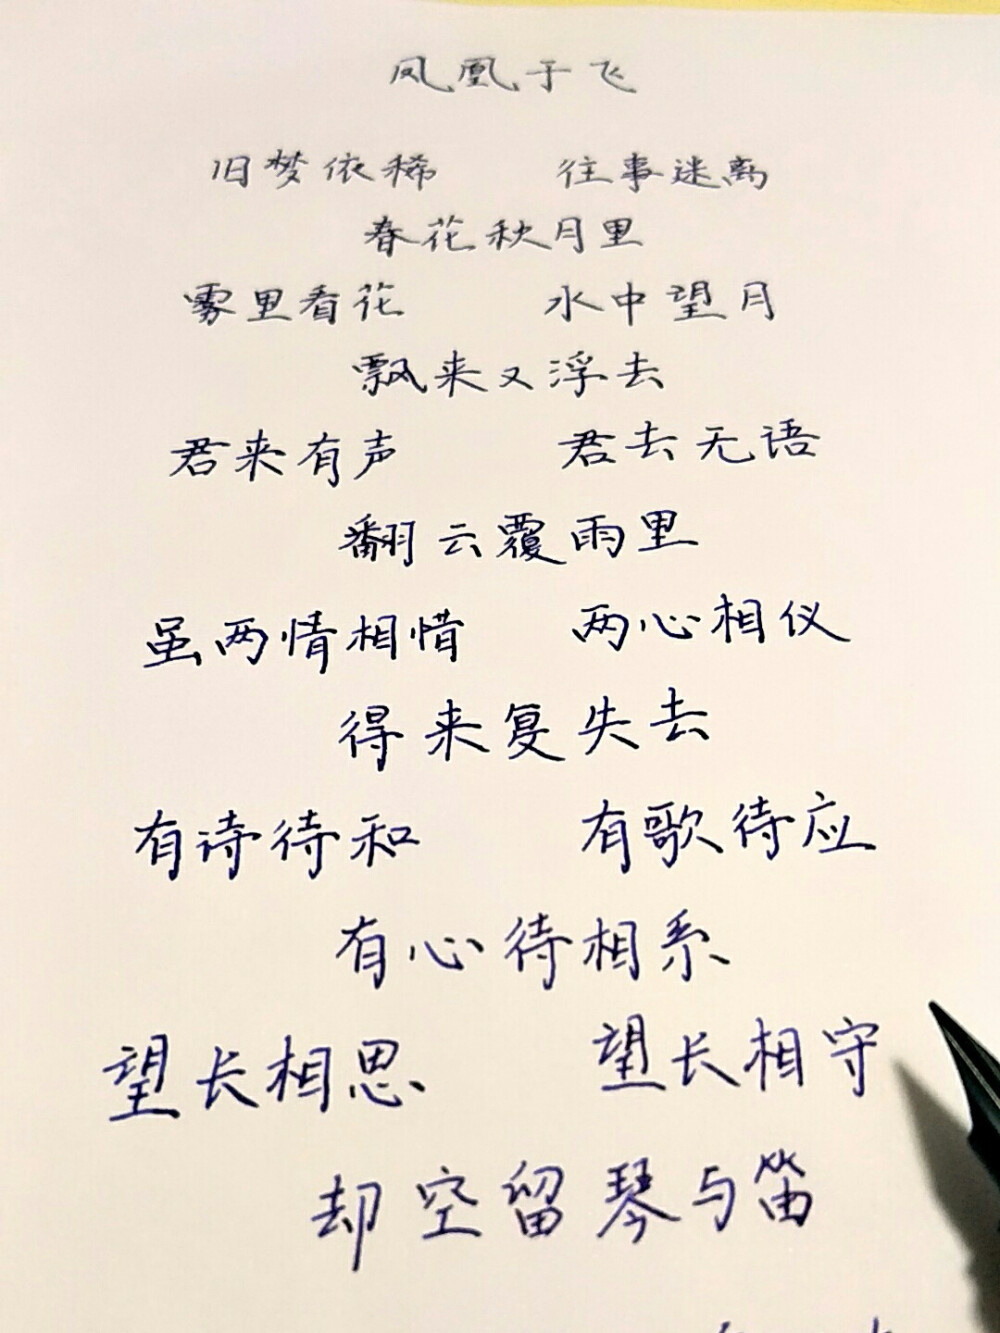 凤凰于飞
旧梦依稀 往事迷离
春花秋月里
雾里看花 水中望月
飘来又浮去
君来有声 君去无语
翻云覆雨里
虽两情相惜 两心相仪
得来复失去
有诗待和 有歌待应
有心待相系
望长相思 望长相守
却空留琴与笛